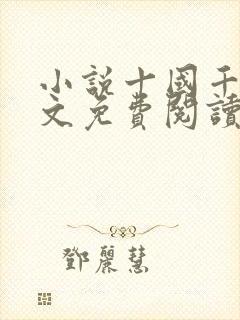 小說十國千
文免費閱讀
鄧麗慧